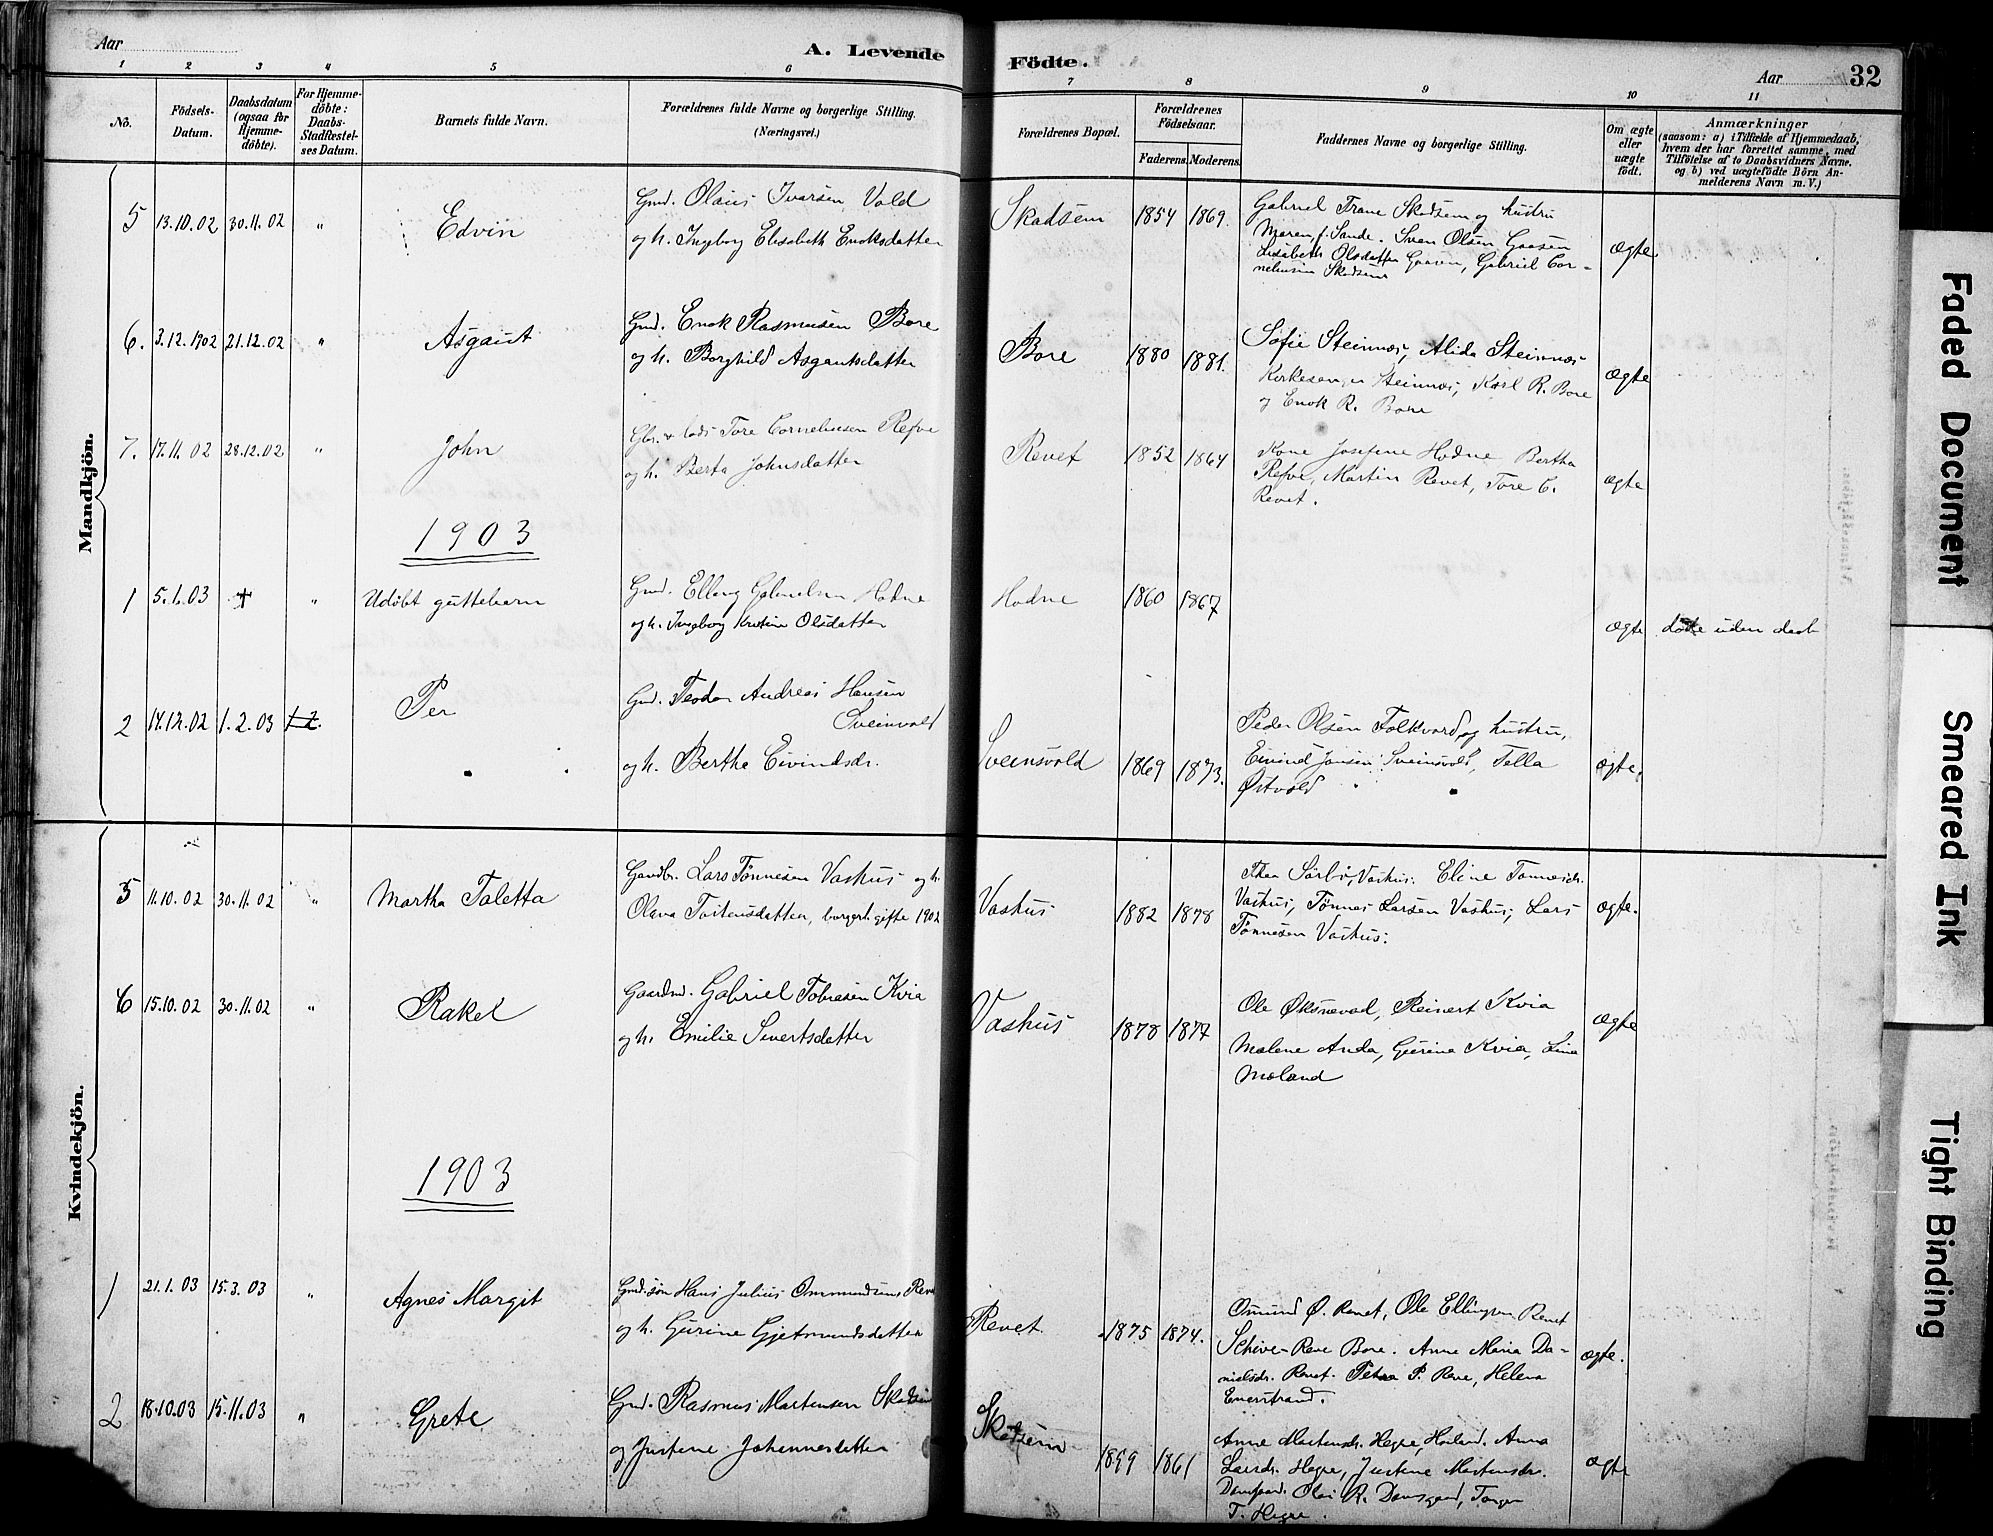 Aar
A. Levende
Födte.
Aar
32
1 2 3 4 5 6 7 8 9 10 11
Nô.
Födsels-
Datum.
Daabsdatum
(ogsaa for
Hjemme-
döbte).
For Hjemme-
döbte:
Daabs-
Stadfæstel-
ses Datum.
Barnets fulde Navn.
Forældrenes fulde Navne og borgerlige Stilling.
(Næringsvei.)
Forældrenes Bopæl.
Forældrenes
Födselsaar.
Faderens.
Moderens.
Faddernes Navne og borgerlige Stilling.
Om ægte
eller
uægte
födt.
Anmærkninger
(saasom: a) i Tilfælde af Hjemmedaab,
hvem der har forrettet samme, med
Tilföielse af to Daabsvidners Navne.
og b) ved uægtefödte Börn An-
melderens Navn m. V.)
Mandkjön.
5 13.10.02 30.11.02 " Edvin
Gmd. Olaus Ivarsen Vold
og h. Ingeborg Elisabeth Enoksdatter
Skadsem 1854 1869.
Gabriel Trane Skadsem og hustru
Maren, f. Sande. Sven Olsen Gaasen
Lisabeth Olsdatter Gaasen, Gabriel Cor-
neliusen Skadsem
ægte
6. 3.12.1902 21.12.02 " Asgaut
Gmd. Enok Rasmusen Bore
og h. Borghild Asgautsdatter
Bore 1880 1881.
Sofie Steinnæs, Alida Steinnæs
Kirkesanger Steinnæs, Karl R. Bore
og Enok R. Bore
ægte
7. 17.11.02 28.12.02 " John
Tore Corneliusen Refve
og h. Berta Johnsdatter
Revet 1852 1864
Kone Josefine Hodne Bertha
Refve, Martin Revet, Tore C.
Revet.
ægte
1903
1 5.1.03 + " Udöbt guttebarn
Gmd. Elling Gabrielsen Hodne
og h. Ingeborg Kristine Olsdatter
Hodne 1860 1867
ægte
døde uden daab
2 14.12.02 1.2.03 1-2. Per
Gmd. Teodor Andreas Hansen
Sveinsvold
og h. Berthe Eivindsdr.
Sveinsvold 1869 1873.
Peder Olsen Folkvord, og hustru,
Eivind Jonsen Sveinsvold, Tella
Østvold
ægte.
Kvindekjön.
5 11.10.02 30.11.02 " Martha Taletta
Gaardbr. Lars Tønnesen Vashus og h.
Olava Tostensdatter, borgerl. gifte 1902
Vashus 1882 1878
Thea Sørbø, Vashus. Eline Tønnesdr.
Vashus, Tønnes Larsen Vashus, Lars
Tönnesen Vashus.
ægte.
6 15.10.02 30.11.02 " Rakel
Gaardmd. Gabriel Tobiasen Kvia
og h. Emilie Sivertsdatter
Vashus 1878 1877
Ole Øksnevad, Reinert Kvia
Malene Anda, Gurine Kvia, Lina
Moland
ægte
1903
1 21.1.03 15.3.03 " Agnes Margit
Gmd.søn Hans Julius Ommundsen Reve
og h. Gurine Gjetmundsdatter
Revet. 1875 1874.
Omund Ø. Revet, Ole Ellingsen Revet
Schive-Reve Bore. Anne Maria Da-
nielsdr. Revet. Petra P. Reve, Helena
Enerstrand.
ægte.
2 18.10.03 15.11.03 " Grete
Gmd. Rasmus Martensen Skadsem
og Justine Johannesdatter
Skadsem 1859 1861
Anne Martensdr. Hegre, Hoiland. Anna
Larsdr. Hegre, Justine Martensdr.
Damsgaard. Olai R. Damsgaard, Torger
T. Hegre.
ægte
Faded Document
Smeared Ink
Tight Binding